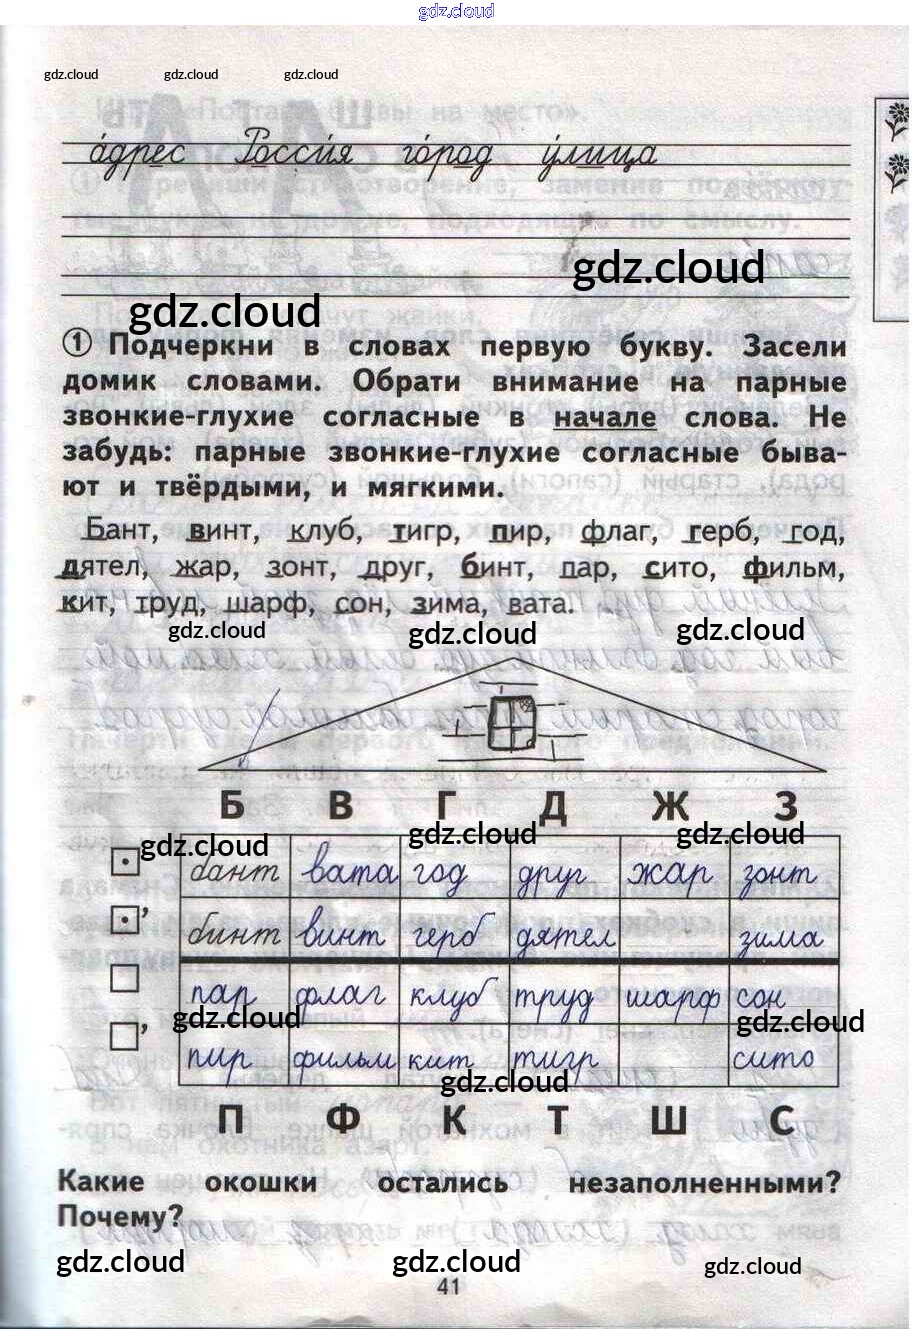 gdz.cloud
gdz.cloud gdz.cloud gdz.cloud
а́дрес Росси́я го́род у́лица
gdz.cloud
gdz.cloud
① Подчеркни в словах первую букву. Засели
домик словами. Обрати внимание на парные
звонкие-глухие согласные в начале слова. Не
забудь: парные звонкие-глухие согласные быва-
ют и твёрдыми, и мягкими.
Бант, винт, клуб, тигр, пир, флаг, герб, год,
дятел, жар, зонт, друг, бинт, пар, сито, фильм,
кит, труд, шарф, сон, зима, вата.
gdz.cloud gdz.cloud gdz.cloud
Б В Г Д Ж З
gdz.cloud gdz.cloud gdz.cloud
бант вата год друг жар зонт
бинт винт герб дятел зима
пар флаг клуб труд шарф сон
gdz.cloud gdz.cloud
пир фильм кит тигр сито
gdz.cloud
П Ф К Т Ш С
Какие окошки остались незаполненными?
Почему?
gdz.cloud gdz.cloud gdz.cloud
41